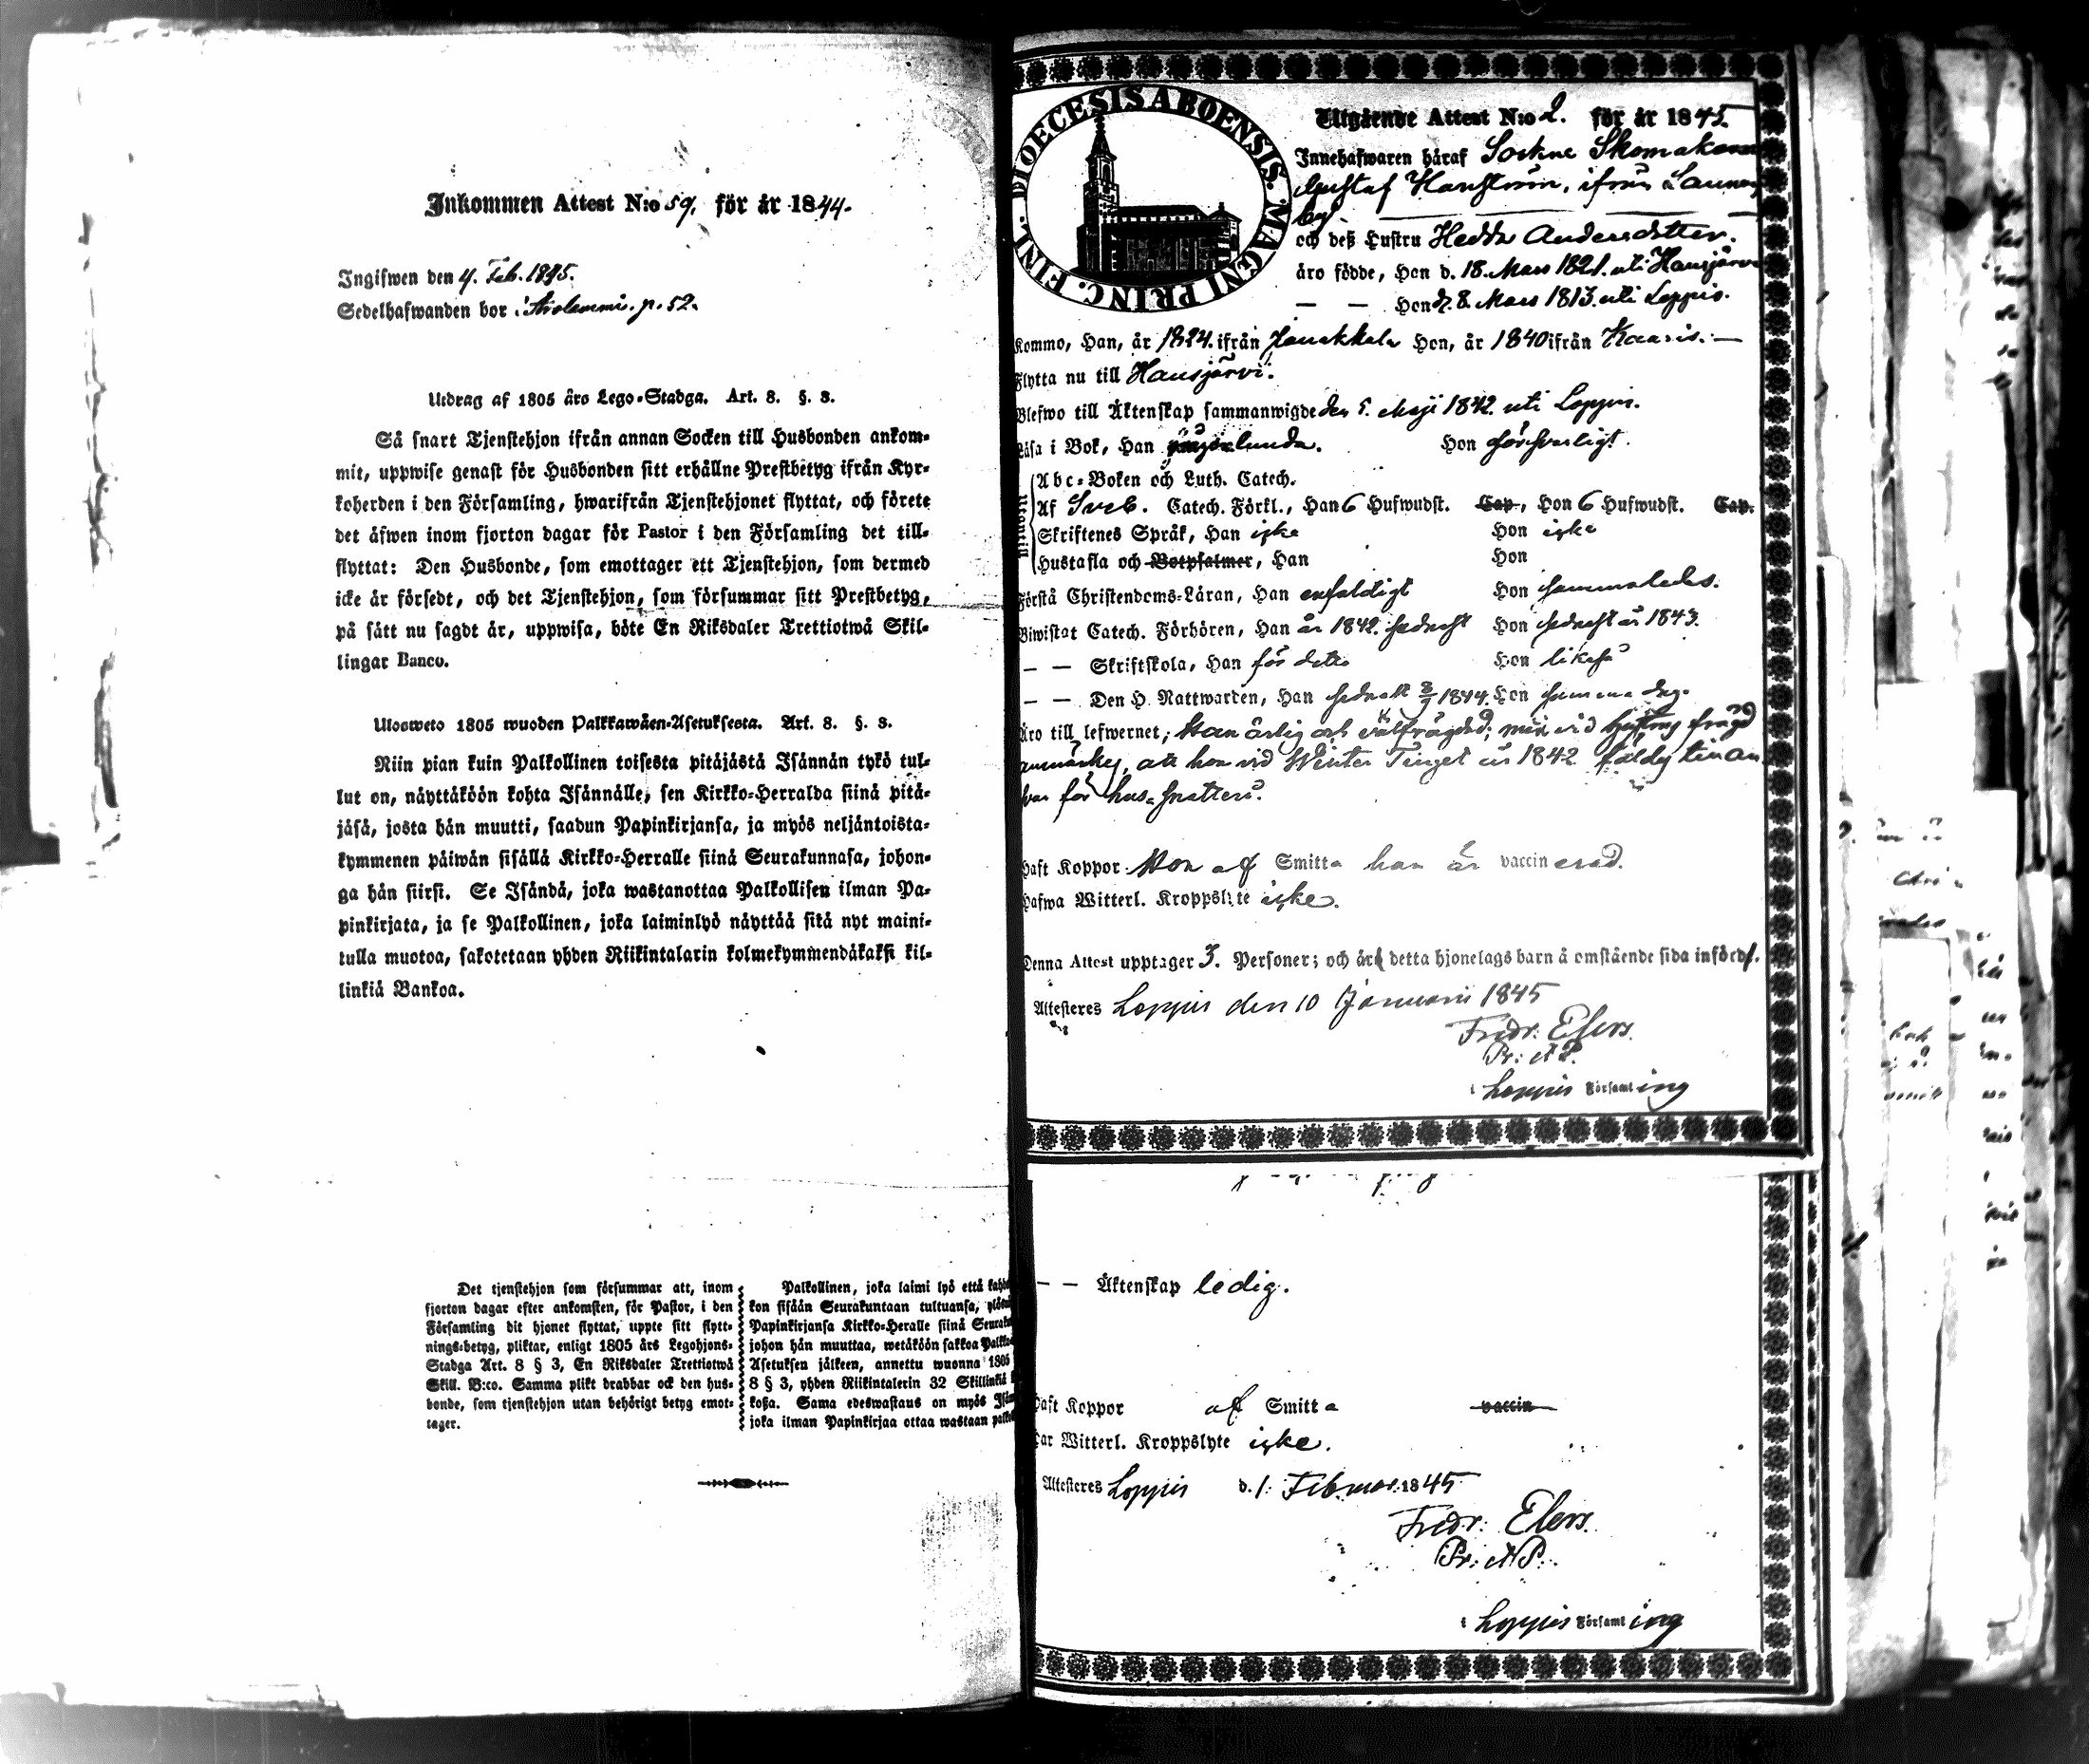 Inkommen Attest N:o 59. för år 1844.
Ingifwen den 4. Feb. 1845.
Sedelhafwanden bor i p. 52.
Utdrag af 1805 års Lego-Stadga. Art. 8. §. 3.
Så snart Tjenstehjon ifrån annan Socken till Husbonden ankom-
mit, uppwise genast för Husbonden sitt erhållne Prestbetyg ifrån Kyr-
koherden i den Församling, hwarifrån Tjenstehjonet flyttat, och förete
det äfwen inom fjorton dagar för Pastor i den Församling det till-
flyttat: Den Husbonde, som emottager ett Tjenstehjon, som dermed
icke är försedt, och det Tjenstehjon, som försummar sitt Prestbetyg,
på sätt nu sagdt är, uppwisa, böte En Riksdaler Trettiotwå Skil-
lingar Banco.
Ulosweto 1805 wuoden Palkkawäen-Asetuksesta. Art. 8. §. 3.
Niin pian kuin Palkollinen toisesta pitäjästä Isännän tykö tul-
lut on, näyttäköön kohta Isännälle, sen Kirkko-Herralda siinä pitä-
jäsä, josta hän muutti, saadun Papinkirjansa, ja myös neljäntoista-
kymmenen päiwän sisällä Kirkko-Herralle siinä Seurakunnasa, johon-
ga hän siirsi. Se Isändä, joka wastanottaa Palkollisen ilman Pa-
pinkirjata, ja se Palkollinen, joka laiminlyö näyttää sitä nyt maini-
tulla muotoa, sakotetaan yhden Riikintalarin kolmekymmendäkaksi kil-
linkiä Bankoa.
Det tjenstehjon som försummar att, inom
fjorton dagar efter ankomsten, för Pastor, i den
Församling dit hjonet flyttat, uppte sitt flytt-
nings-betyg, pliktar, enligt 1805 års Legohjons-
Stadga Art. 8 § 3, En Riksdaler Trettiotwå
Skill. B:co. Samma plikt drabbar ock den hus-
bonde, som tjenstehjon utan behörigt betyg emot-
tager.
Palkollinen, joka laimi lyö että kahden
kon sisään Seurakuntaan tultuansa,
Papinkirjansa Kirkko-Heralle siinä
johon hän muuttaa, wetäköön sakkoa
Asetuksen jälkeen, annettu wuonna 1805
8 § 3, yhden Riikintalerin 32 Skillinkiä
koßa. Sama edeswastaus on myös
joka ilman Papinkirjaa ottaa wastaan
DIOECESIS ABOENSIS. MAGNI PRINC. FINL.
Utgående Attest N:o 2. för år 1845.
Innehafwaren häraf Sockne Skomakaren
Gustaf ifrån
by
och deß Hustru Hedda Andersdotter.
äro födde, Han d. 18. Mars 1821. uti Hausjärvi
— — Hon d. 8. Mars 1813. uti Loppis.
Kommo, Han, år 1824. ifrån Janakkala Hon, år 1840 ifrån Kaaris. —
Flytta nu till Hausjärvi.
Blefwo till Äktenskap sammanwigde den 5. Maji 1842. uti Loppis.
Läsa i Bok, Han någorlunda. Hon försvarligt.
Abc-Boken och Luth. Catech.
Af Sveb. Catech. Förkl., Han 6 Hufwudst. Cap., Hon 6 Hufwudst. Cap.
Skriftenes Språk, Han icke Hon icke
Hustafla och Botpsalmer, Han Hon
Förstå Christendoms-Läran, Han enfaldigt Hon sammaledes.
Biwistat Catech. Förhören, Han år 1842. sednast Hon sednast år 1843.
— — Skriftskola, Han för detta Hon likaså
— — Den H. Nattwarden, Han sednast 1844. Hon samma dag.
Äro till lefwernet, Han ärlig och välfrägdad; men vid hustrus frägd
anmärkes, att hon vid Winter Tinget år 1842 fäldes till an
svar för hus-snatteri.
Haft Koppor Hon af Smitta han är vaccinerad.
Hafwa Witterl. Kroppslyte icke.
Denna Attest upptager 3. Personer; och äro detta hjonelags barn å omstående sida införde.
Attesteres Loppis den 10 Januarii 1845
Fredr: Elers.
i Loppis Församling
— — Äktenskap ledig.
Haft Koppor af Smitta vaccin
Har Witterl. Kroppslyte icke.
Attesteres Loppis d. 1. Februar. 1845
Fredr: Elers.
i Loppis Församling